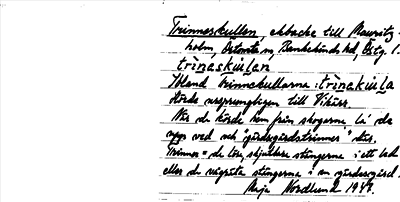 Trinneskullen, ekbacke till Mauritz-
holm, Östanta sn, Bankekinds hd, Östg. l.
trinaskulan
Ibland Trinnekullarna : trinakula
hörde ursprungligen till
När de körde hem från skogarna la' de
upp ved och "gärdsgårdstrinner" där.
Trinnor = de lösa, stängerna i ett led
eller de vågräta stängerna i en gärdesgård.
Maja Nordlund 1947.